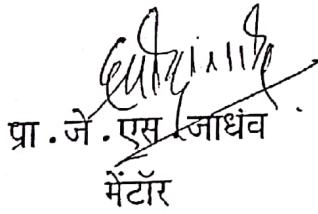 प्रा.जे.एस.जाधंव
मेंटॉर